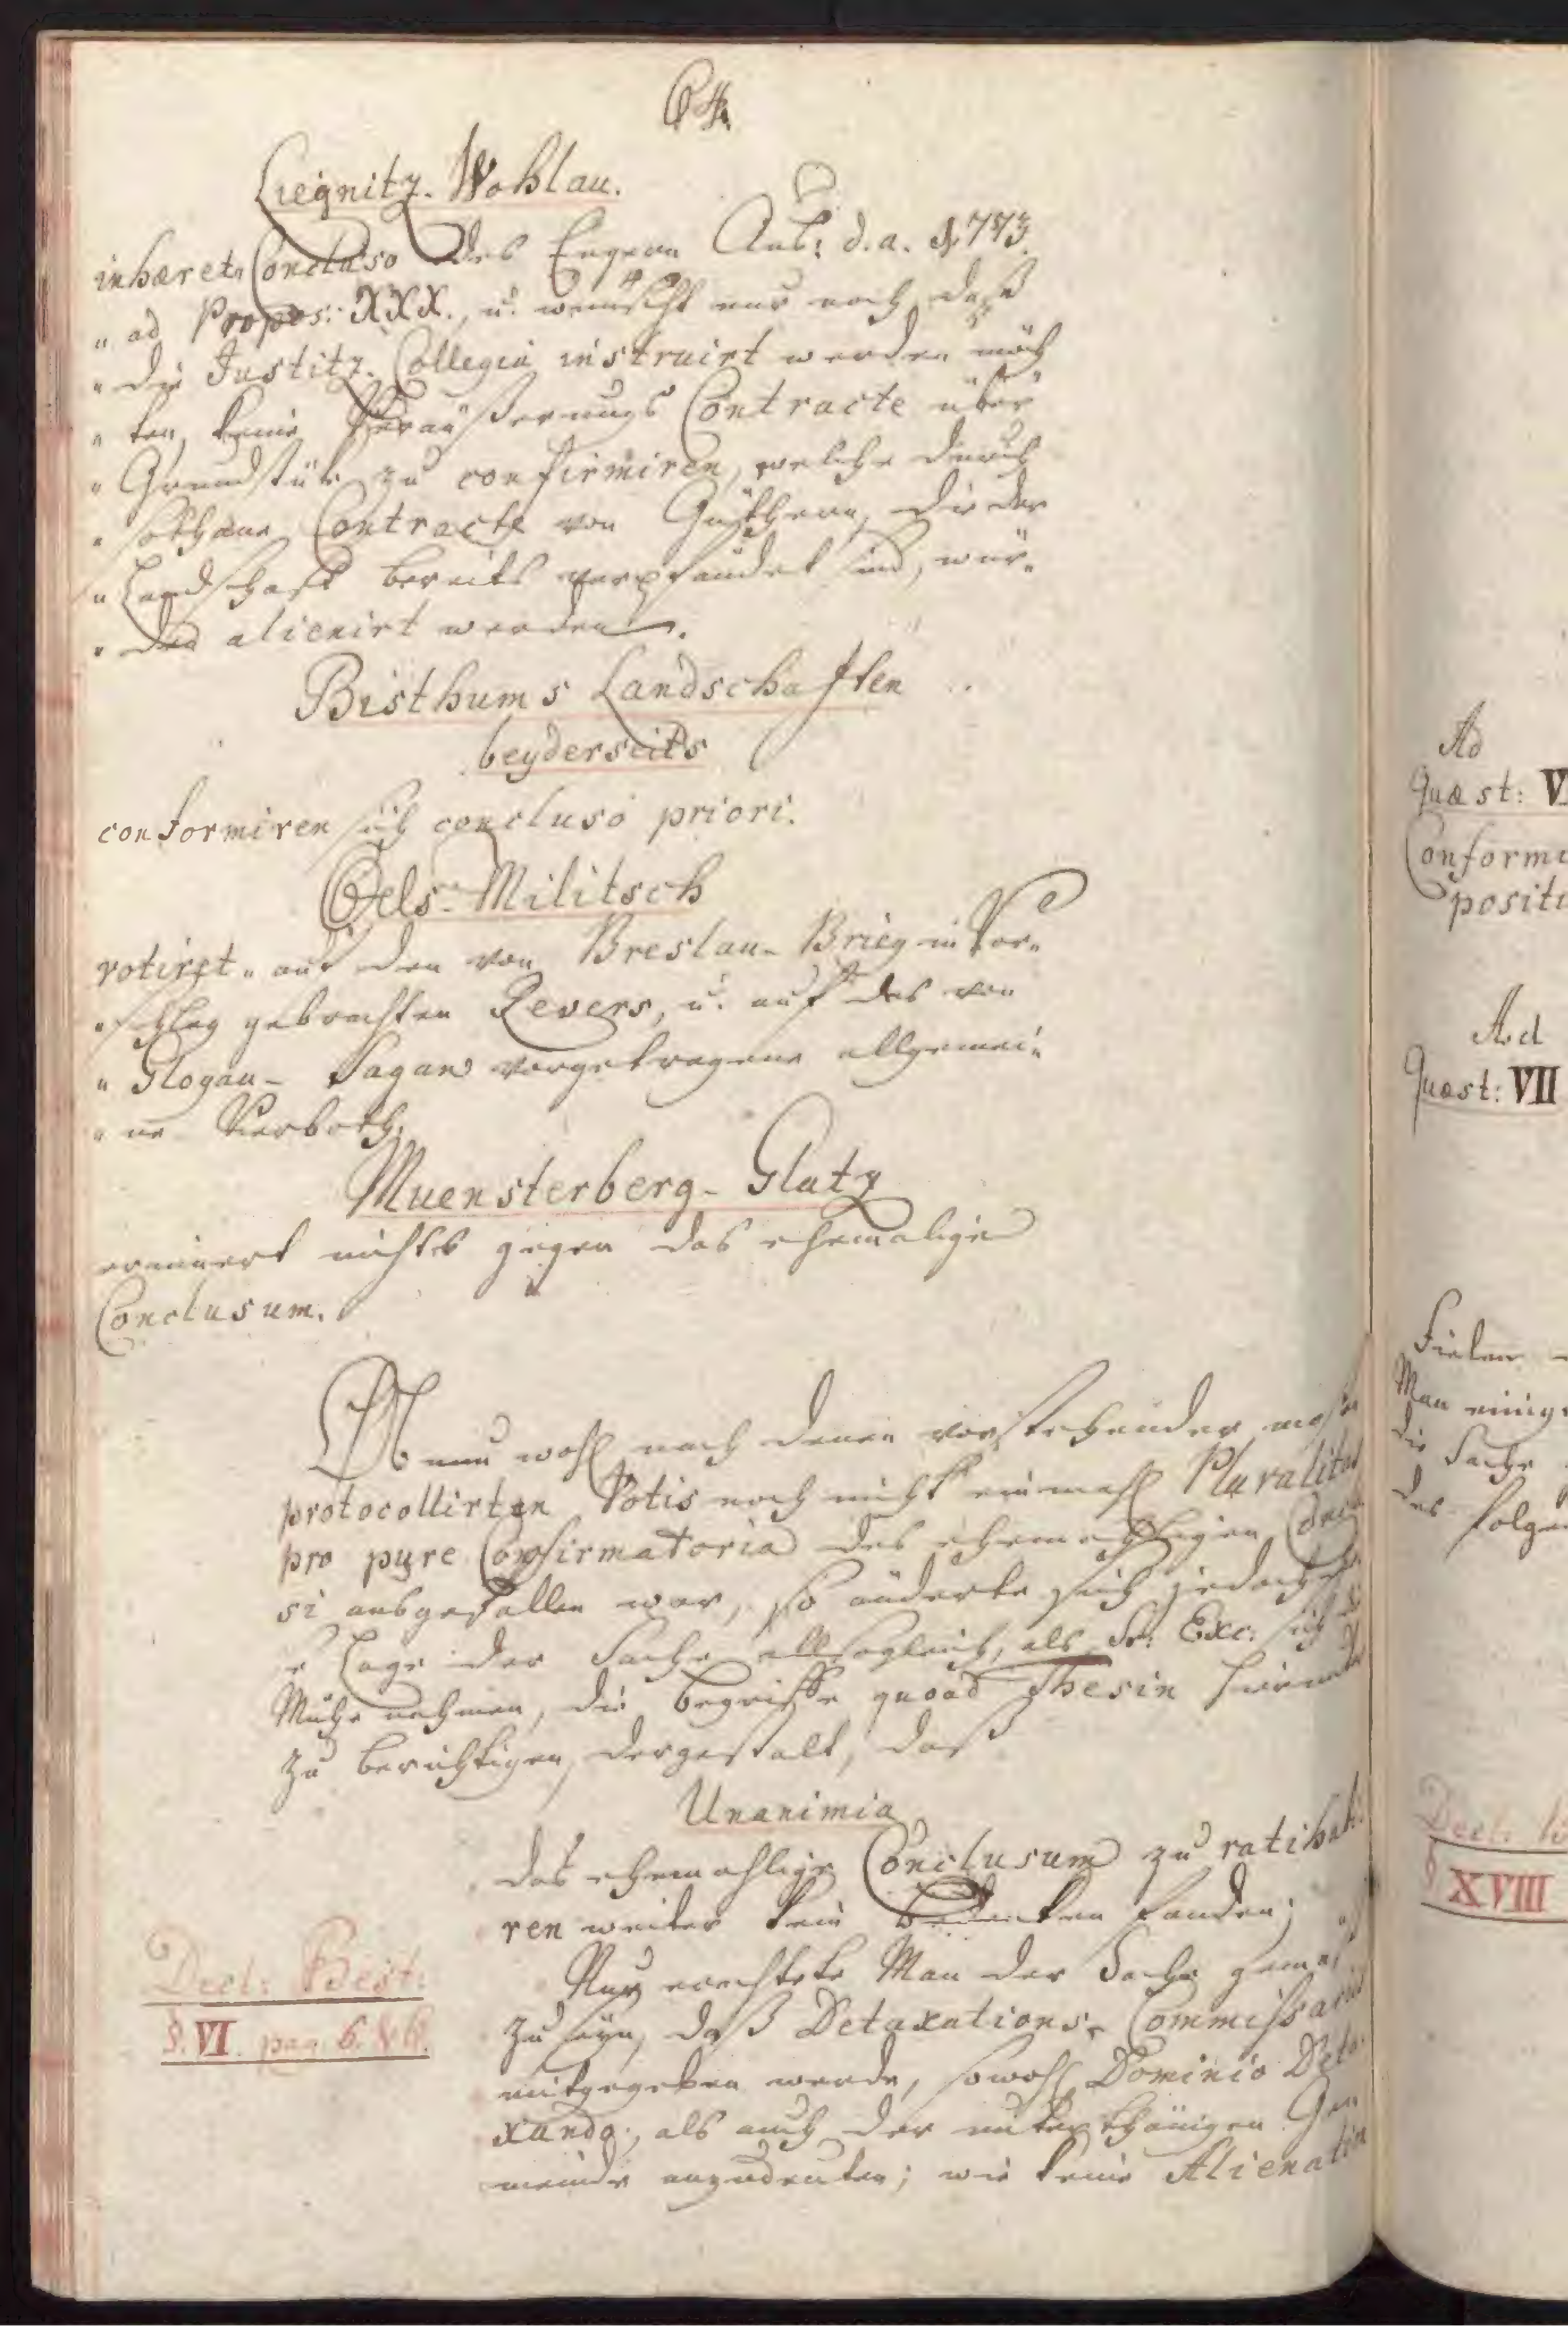 64.
Liegnitz-Wohlau.
inhæret „Concluso des Engern Aus: d. a. 1773.
„ ad Propos: XXX., u. wünscht nur noch, daß
„ die Justitz-Collegia instruirt werden möch
„ ten, keine Veräußerungs Contracte über
„ Grundstüke zu confirmiren, welche durch
„ sothane Contracte von Güthern, die der
„ Landschaft bereits verpfändet sind, wür„
„ den alienirt werden.
Bisthums Landschaften
beyderseits
conformiren sich concluso priori.
Oels-Militsch
votiret „ auf den von Breslau-Brieg in Vor„
„ schlag gebrachten Revers, u. auf das von
„ Glogau-Sagan vorgetragene allgemei„
„ ne Verboth.
Muensterberg-Glatz
erinnert nichts gegen das ehemalige
Conclusum.
Ob nun wohl nach denen vorstehender maßen
protocollirten Votis noch nicht einmahl Pluralitas
pro pure Confirmatoria des ehemahligen Conclu
si ausgefallen war, so änderte sich jedoch
e Lage der Sache allsogleich, als Sr: Exc: sich die
Mühe nahmen, die begriffe quoad Thesin hierunter
zu berichtigen, dergestalt, daß
Unanimia
das ehemahlige Conclusum zu ratihabi
ren weiter kein bedenken fanden;
Nur erachtete Man der Sache gemäß
zu seyn, daß Detaxations-Commissariis
mitgegeben werde, sowohl Dominio Deta
xando, als auch der unterthänigen Ge
meinde anzudeuten; wie keine Alienation
Decl: Best:
§. VI. pag. 6. & 6.
Ad
Quæst: V
Conformi
positi
Ad
Quæst: VII
Fielen
Man einig
die Sache
des folge
Decl:
§ XVIII